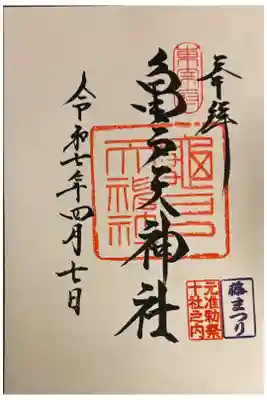 奉拝
東宰府
亀戸天神社
亀戸
天神社
令和七年四月七日
藤まつり
元准勅祭
十社之内